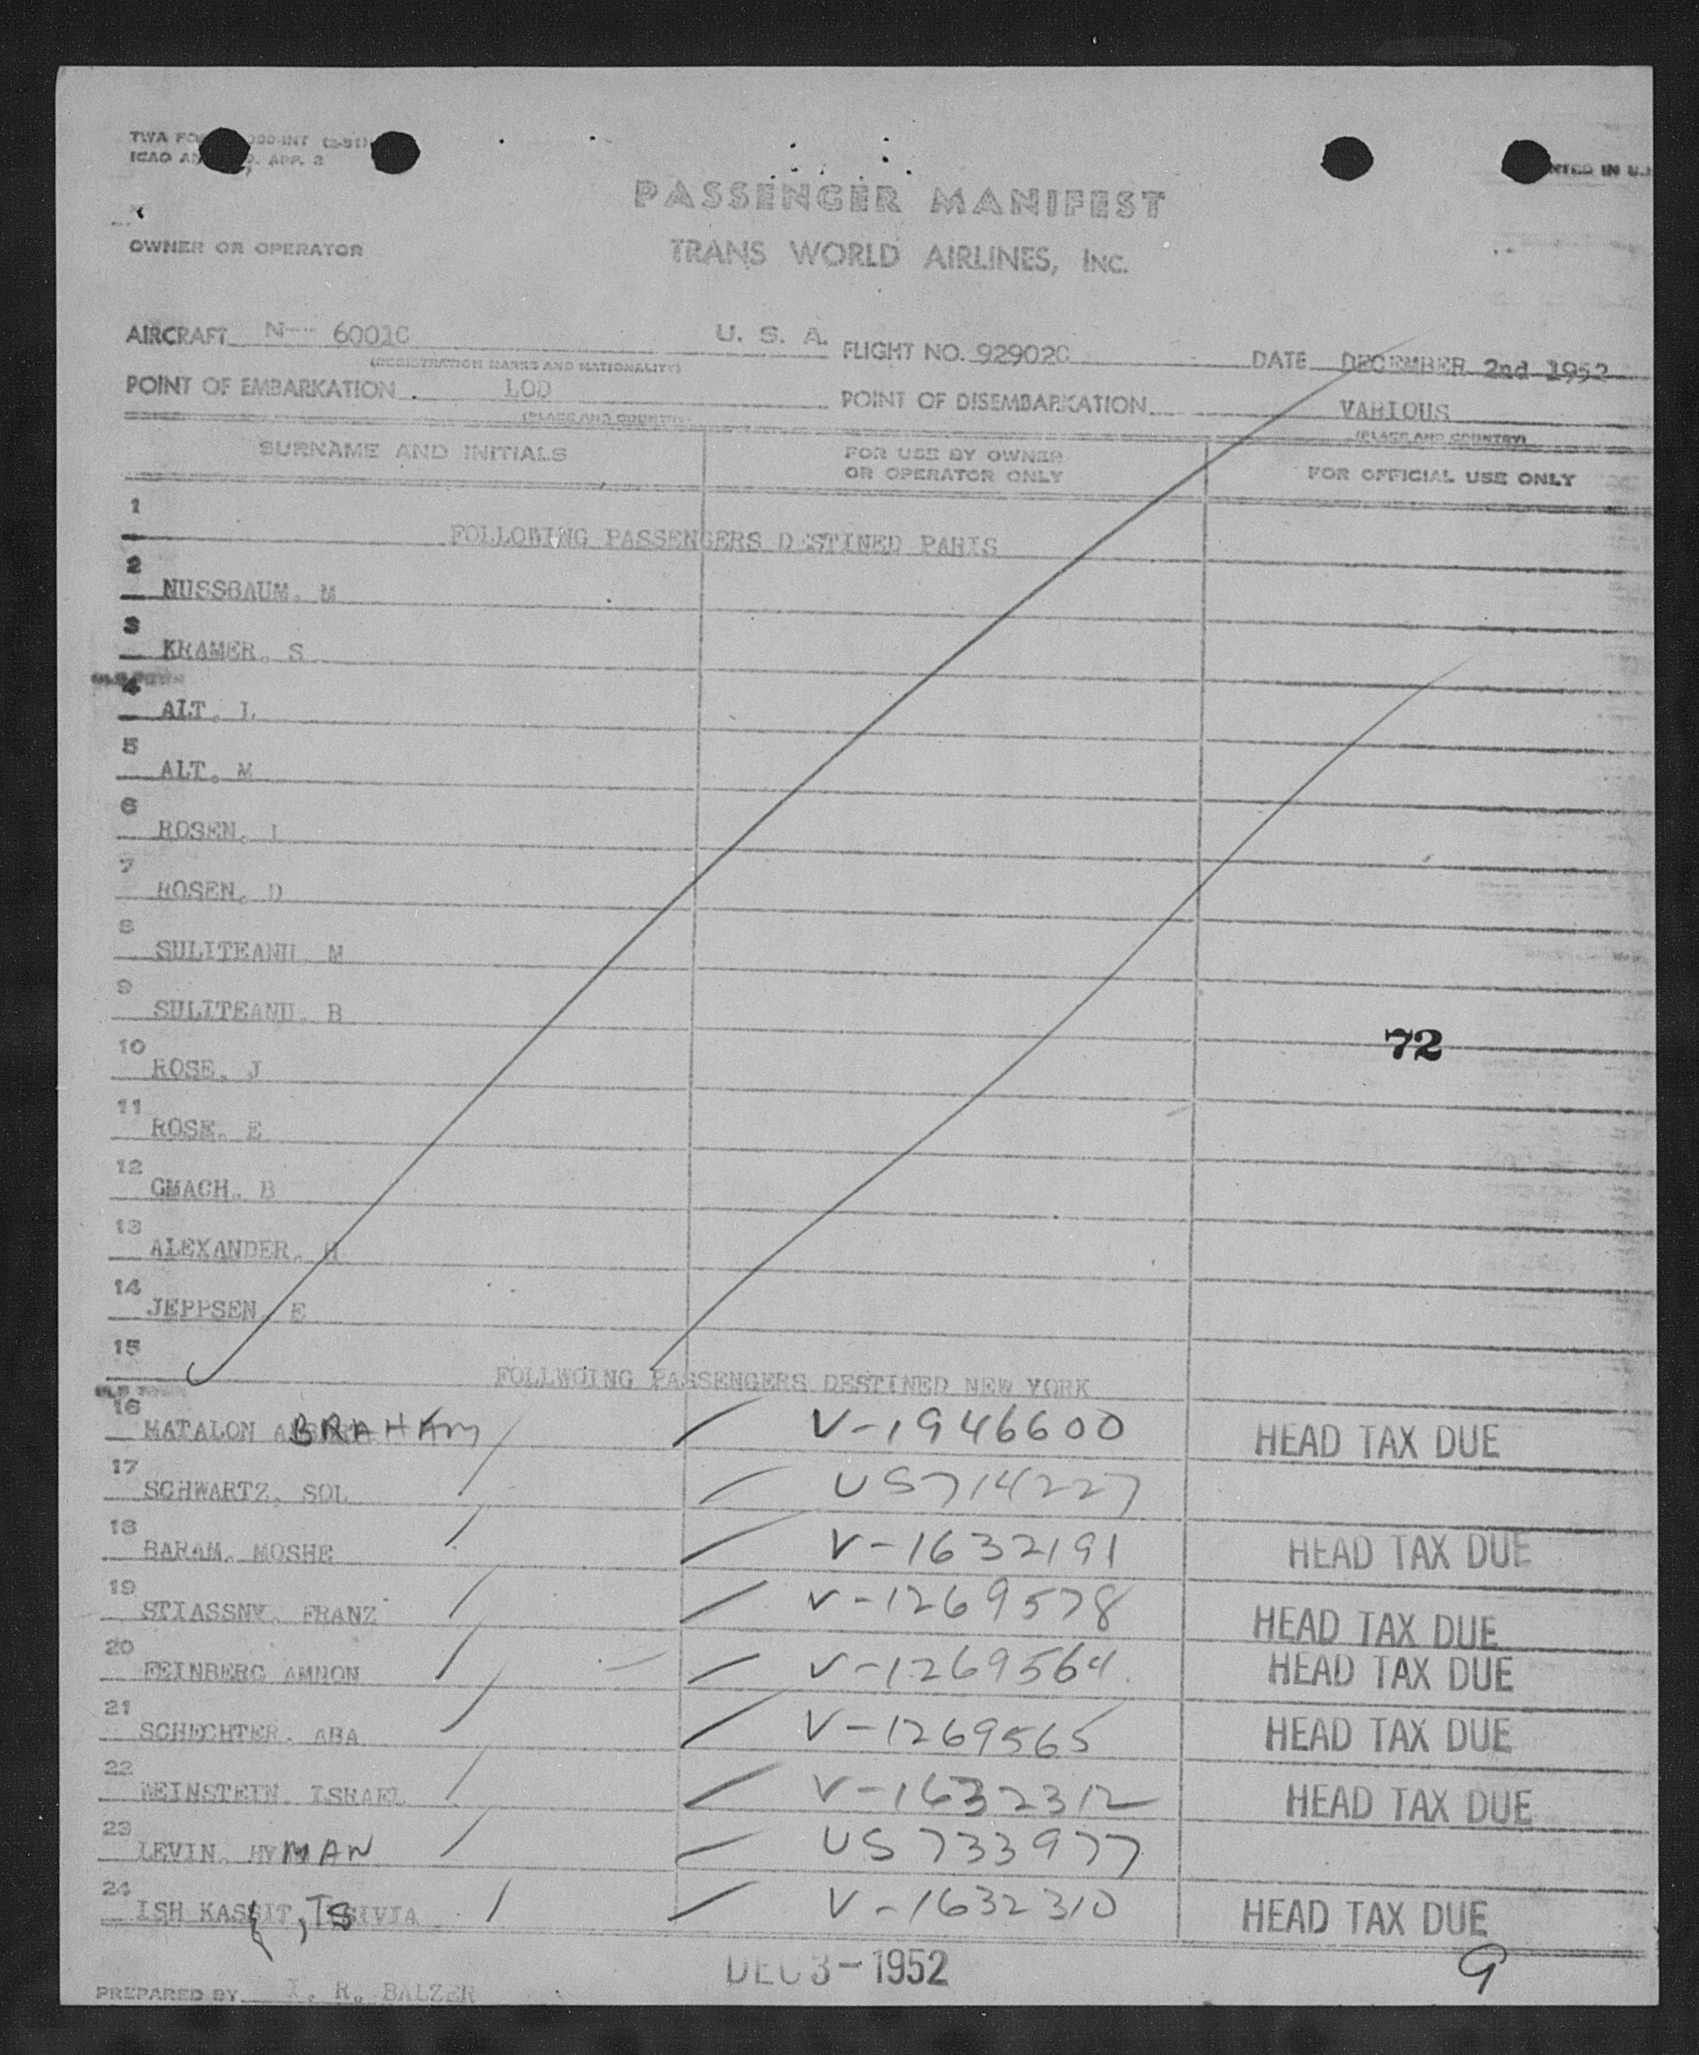 PASSENGER MANIFEST
TRANS WORLD AIRLINES, INC.
OWNER OR OPERATOR
AIRCRAFT N 6001C U. S. A. FLIGHT NO. 92902C DATE DECEMBER 2nd 1952
(REGISTRATION MARKS AND NATIONALITY)
POINT OF EMBARKATION LOD POINT OF DISEMBARKATION VARIOUS
(PLACE AND COUNTRY) (PLACE AND COUNTRY)
SURNAME AND INITIALS FOR USE BY OWNER OR OPERATOR ONLY FOR OFFICIAL USE ONLY
1 FOLLOWING PASSENGERS DESTINED PARIS
2 NUSSBAUM. M
3 KRAMER. S
4 ALT. L
5 ALT. M
6 ROSEN. I
7 ROSEN. D
8 SULITEANU. M
9 SULITEANU. B
72
10 ROSE. J
11 ROSE. E
12 GMACH. B
13 ALEXANDER. H
14 JEPPSEN. E
15 FOLLWOING PASSENGERS DESTINED NEW YORK
16 MATALON ABRAHAM V-1946600 HEAD TAX DUE
17 SCHWARTZ, SOL US714227
18 BARAM. MOSHE V-1632191 HEAD TAX DUE
19 STIASSNY. FRANZ V-1269578 HEAD TAX DUE
20 FEINBERG AMNON V-1269564 HEAD TAX DUE
21 SCHECHTER. ABA V-1269565 HEAD TAX DUE
22 WEINSTEIN. ISRAEL V-1632312 HEAD TAX DUE
23 LEVIN. HYMAN US733977
24 ISH KASSIT, TSIVIA V-1632310 HEAD TAX DUE
DEC 3-1952 9
PREPARED BY I. R. BALZER